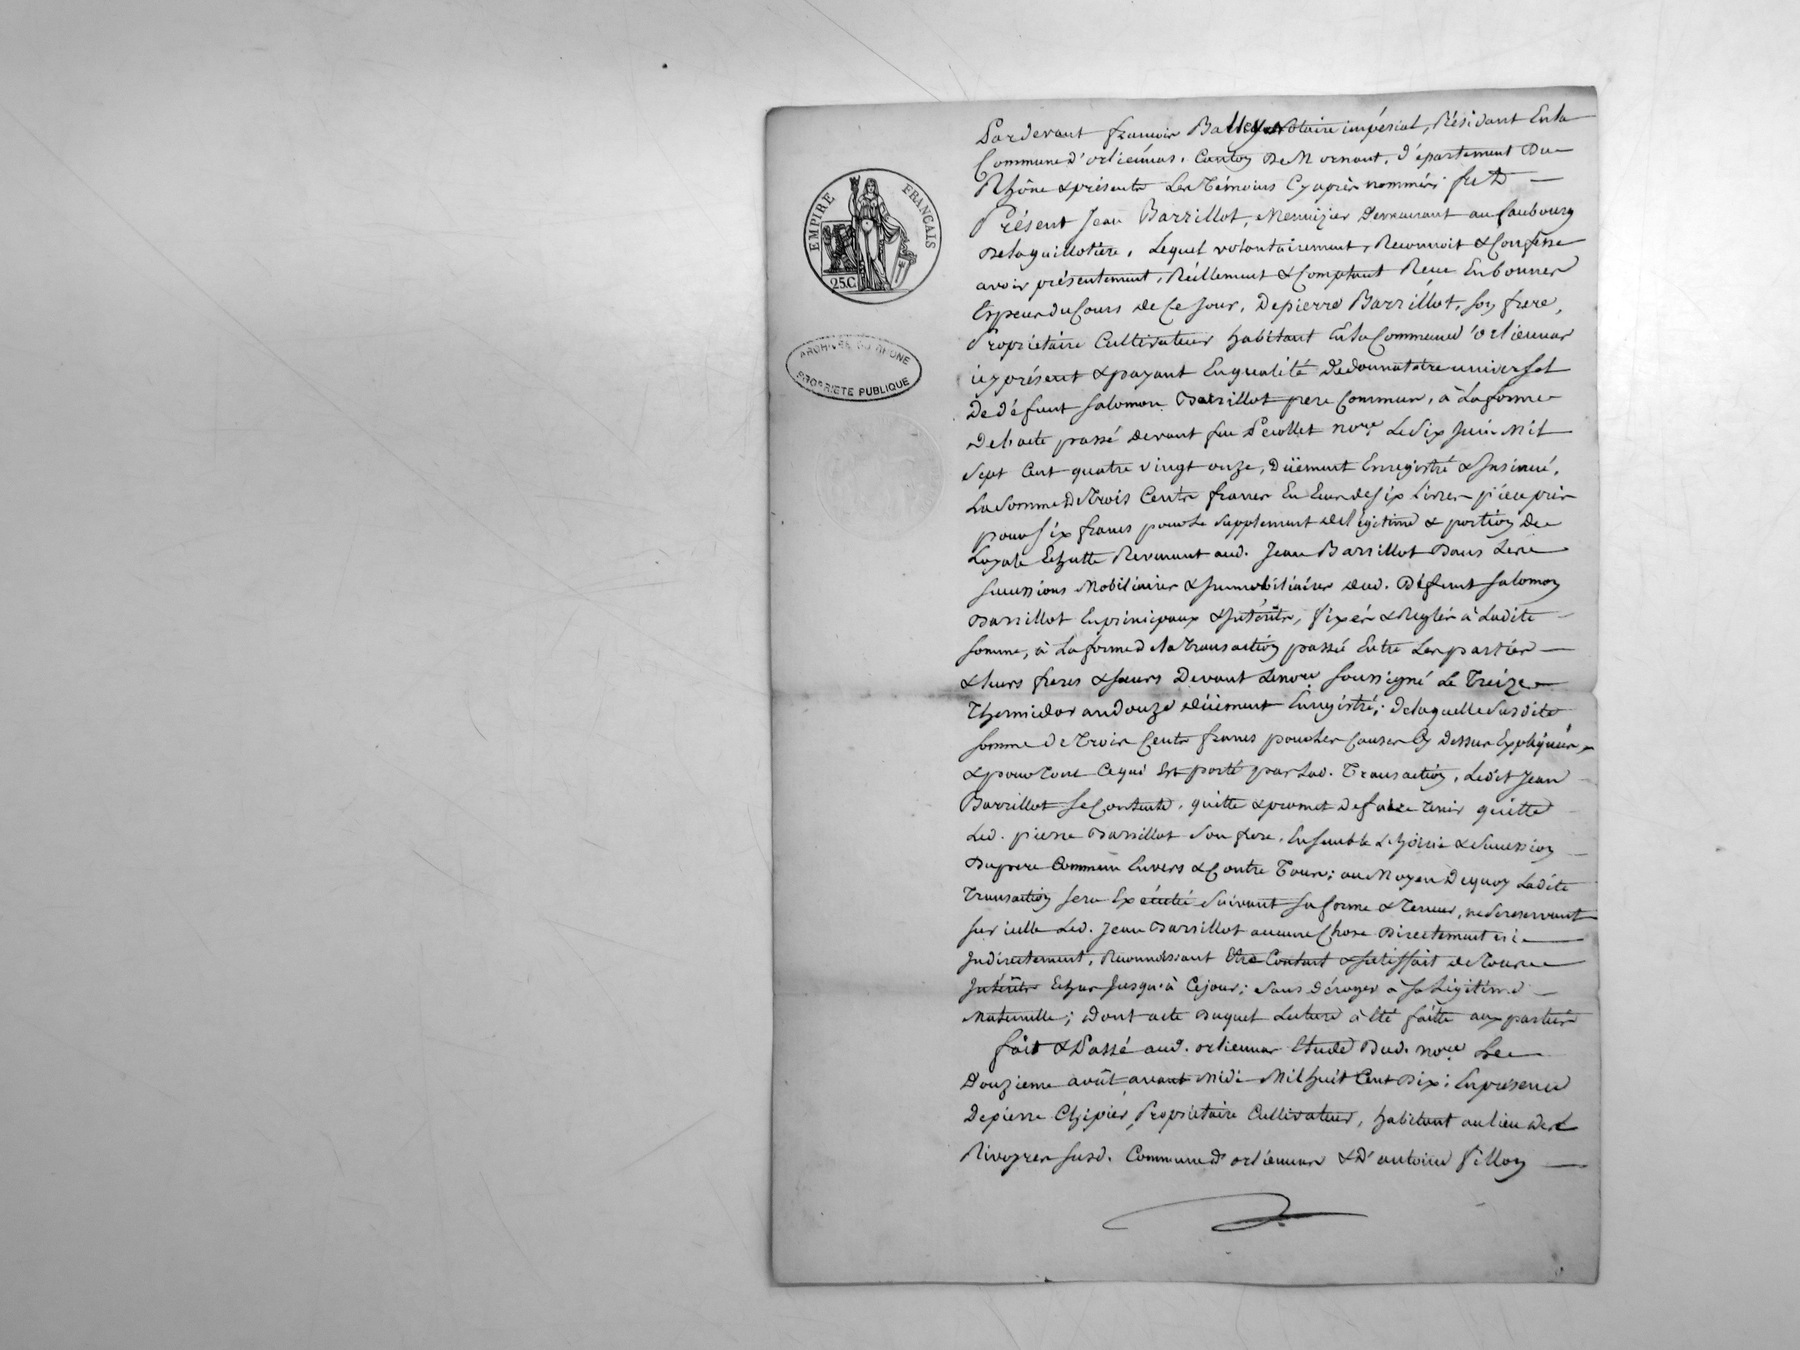 EMPIRE FRANÇAIS
25.C.
ARCHIVES DU RHÔNE
PROPRIETE PUBLIQUE
Pardevant françois Balley Notaire impérial, Résidant En la
Commune d'orliénas, Canton De Mornant, département Du
Rhône & présents Les Témoins Cy après nommés; fut
Présent Jean Barzillot, Menuizier Demeurant au faubourg
De la guillotière, Lequel volontairement, Reconnoit & Confesse
avoir présentement, Réellement & Comptant Reçu En bonnes
Espèces du Cours de Ce Jour, De pierre Barzillot, son frere,
Propriétaire Cultivateur habitant En la Commune d'orliénas
icy présent & payant En qualité de donnataire universel
De défunt Salomon Barzillot pere Commun, à La forme
De l'acte passé devant feu Pécollet nore. Le Six Juin Mil
Sept Cent quatre vingt onze, düement Enregistré & Insinué,
La Somme De Trois Cents francs En Ecus de Six Livres pièce pris
pour Six francs pour Le Supplement de légitime & portion De
Loyale Echutte Revenant aud. Jean Barzillot Dans Les
Successions Mobiliaires & Immobiliaires dud. Défunt Salomon
Barzillot En principaux & Intérêts, fixés & Réglés à Ladite
Somme, à La forme de la Transaction passée Entre Les parties
& leurs freres & sœurs Devant Le nore. soussigné Le Treize
Thermidor an douze düement Enrégistré; de laquelle Susdite
Somme De Trois Cents francs pour les Causes Cy dessus Expliquées,
& pour Tout Ce qui Est porté par Lad. Transaction, Ledit Jean
Barzillot Se Contente, quitte & promet De faire Tenir quitte
Led. pierre Barzillot Son frere, Ensemble L'hoirie & Succession
Du pere Commun Envers & Contre Tous; au Moyen De quoy Ladite
Transaction sera Exécutée Suivant sa forme & Teneur, ne Se reservant
sur icelle Led. Jean Barzillot aucune Chose Directement ni
Indirectement, Reconnoissant Etre Content & satisfait de Tous
Intérêts Echus Jusqu'à Ce jour; Sans déroger à Sa Légitime
Maternelle; Dont acte Duquel Lecture à été faitte aux parties
fait & Passé aud. orliénas Etude Dud. nore. Le
Douzieme août avant Midi Mil huit Cent Dix; En présence
De pierre Chipier, Propriétaire Cultivateur, habitant au lieu des
Rivoires susd. Commune d'orliénas & D'antoine Pillon